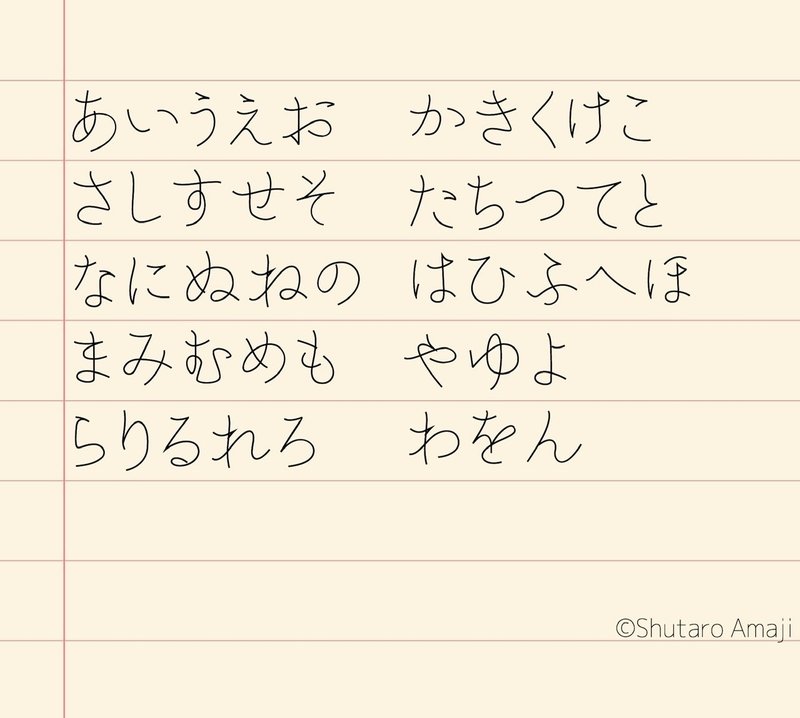 あいうえお　かきくけこ
さしすせそ　たちつてと
なにぬねの　はひふへほ
まみむめも　やゆよ
らりるれろ　わをん
©Shutaro Amaji